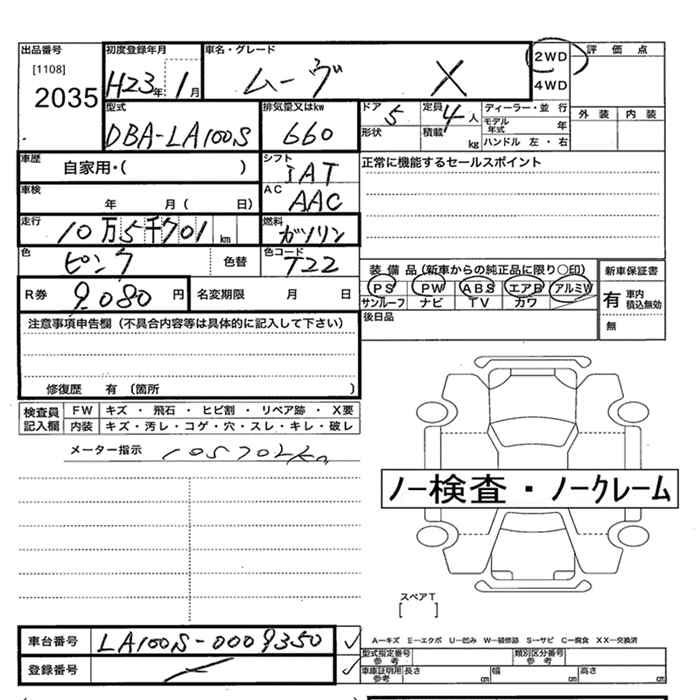 出品番号 初度登録年月 車名・グレード 2WD 評価点
[1108] 2035 H23年 1月 ムーヴ X 4WD
型式 排気量又はkw ドア 5 定員 4人 ディーラー・並行 外装 内装
DBA-LA100S 660 形状 積載 kg モデル年式 年
ハンドル 左・右
車歴 自家用・( ) シフト IAT 正常に機能するセールスポイント
車検 年 月( 日) AC AAC
走行 10万5千701km 燃料 ガソリン
色 ピンク 色替 色コード T22 装備品(新車からの純正品に限り○印) 新車保証書
R券 9,080円 名変期限 月 日 PS PW ABS エアB アルミW 有 車内積込無効
サンルーフ ナビ TV カワ 無
注意事項申告欄(不具合内容等は具体的に記入して下さい) 後日品
修復歴 有 (箇所 )
検査員記入欄 FW キズ・飛石・ヒビ割・リペア跡・X要
内装 キズ・汚レ・コゲ・穴・スレ・キレ・破レ
メーター指示 105702km
ノー検査・ノークレーム
スペアT
[ ]
車台番号 LA100S-0009350
A-キズ E-エクボ U-凹み W-補修跡 S-サビ C-腐食 XX-交換済
型式指定番号 参考 類別区分番号 参考
登録番号 車庫証明用 参考 長さ cm 幅 cm 高さ cm